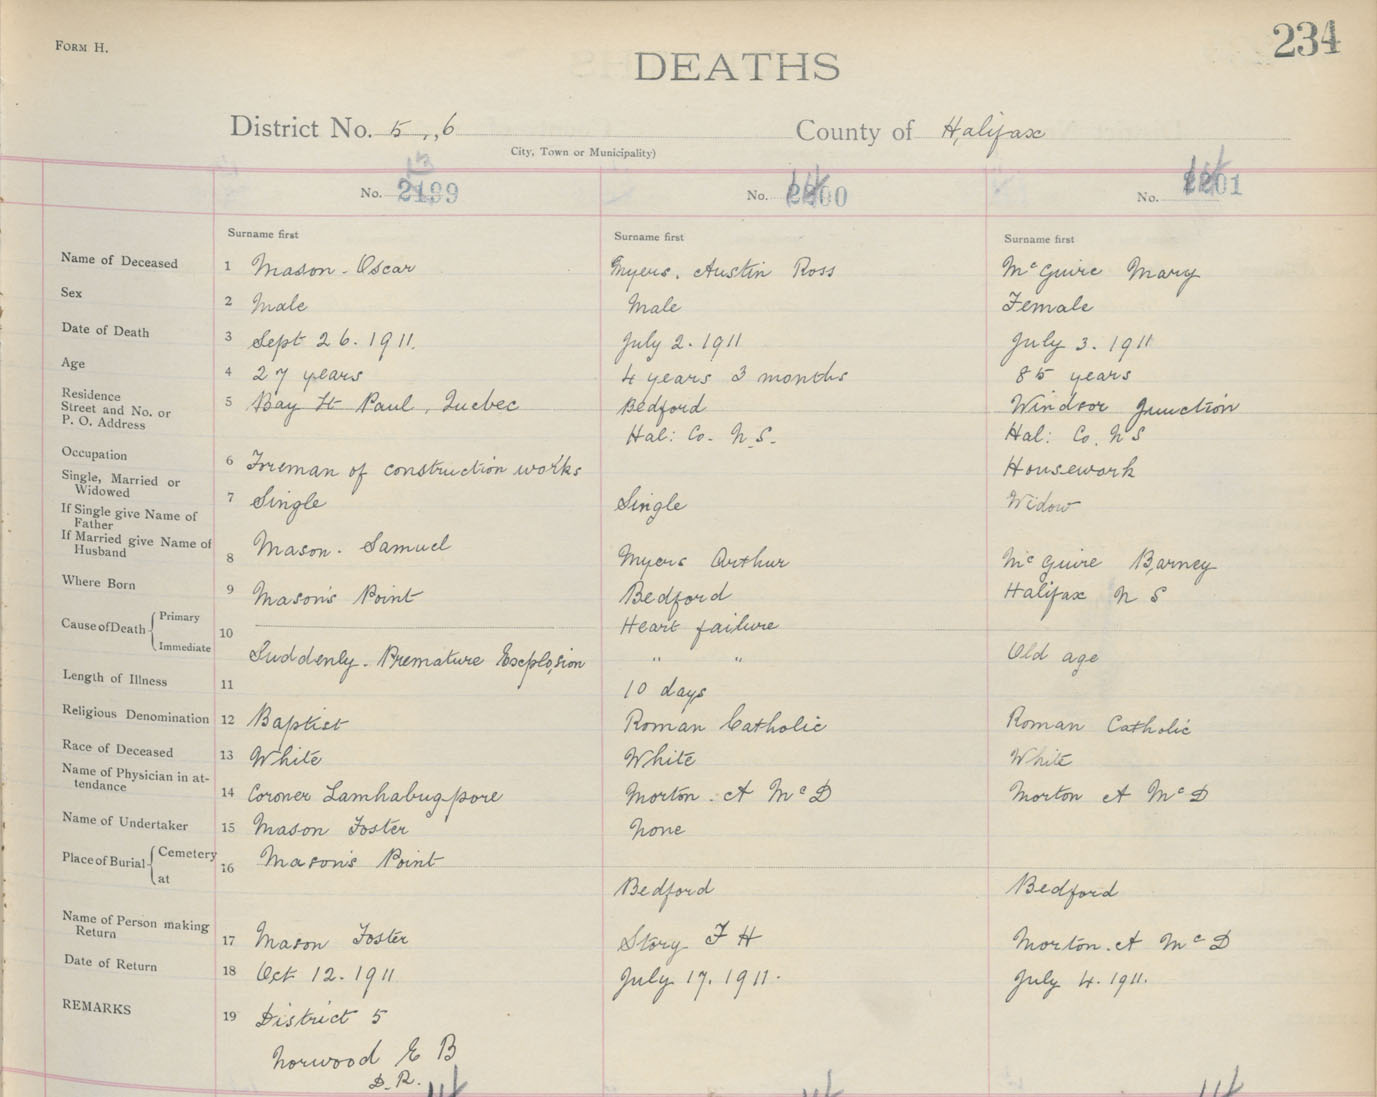 FORM H.
234
DEATHS
District No. 5, ,6
County of Halifax
City, Town or Municipality)
No. 2199
No. 2200
No. 2201
Surname first
Surname first
Surname first
Name of Deceased
1 Mason - Oscar
Myers. Austin Ross
McGuire Mary
Sex
2 Male
Male
Female
Date of Death
3 Sept 26. 1911.
July 2. 1911
July 3. 1911
Age
4 27 years
4 years 3 months
85 years
Residence
Street and No. or
P. O. Address
5 Bay St Paul, Quebec
Bedford
Hal: Co. N.S.
Windsor Junction
Hal: Co. N S
Occupation
6 Foreman of construction works
Housework
Single, Married or
Widowed
7 Single
Single
Widow
If Single give Name of
Father
If Married give Name of
Husband
8 Mason. Samuel
Myers Arthur
McGuire Barney
Where Born
9 Mason's Point
Bedford
Halifax N S
Cause of Death
Primary
Immediate
10
Heart failure
Suddenly. Premature Explosion
" "
Old age
Length of Illness
11
10 days
Religious Denomination
12 Baptist
Roman Catholic
Roman Catholic
Race of Deceased
13 White
White
White
Name of Physician in at-
tendance
14 Coroner
Morton. A McD
Morton A McD
Name of Undertaker
15 Mason Foster
None
Place of Burial
Cemetery
at
16 Mason's Point
Bedford
Bedford
Name of Person making
Return
17 Mason Foster
Story F H
Morton. A McD
Date of Return
18 Oct 12. 1911
July 17. 1911.
July 4. 1911.
REMARKS
19 District 5
Norwood E B
D. R.